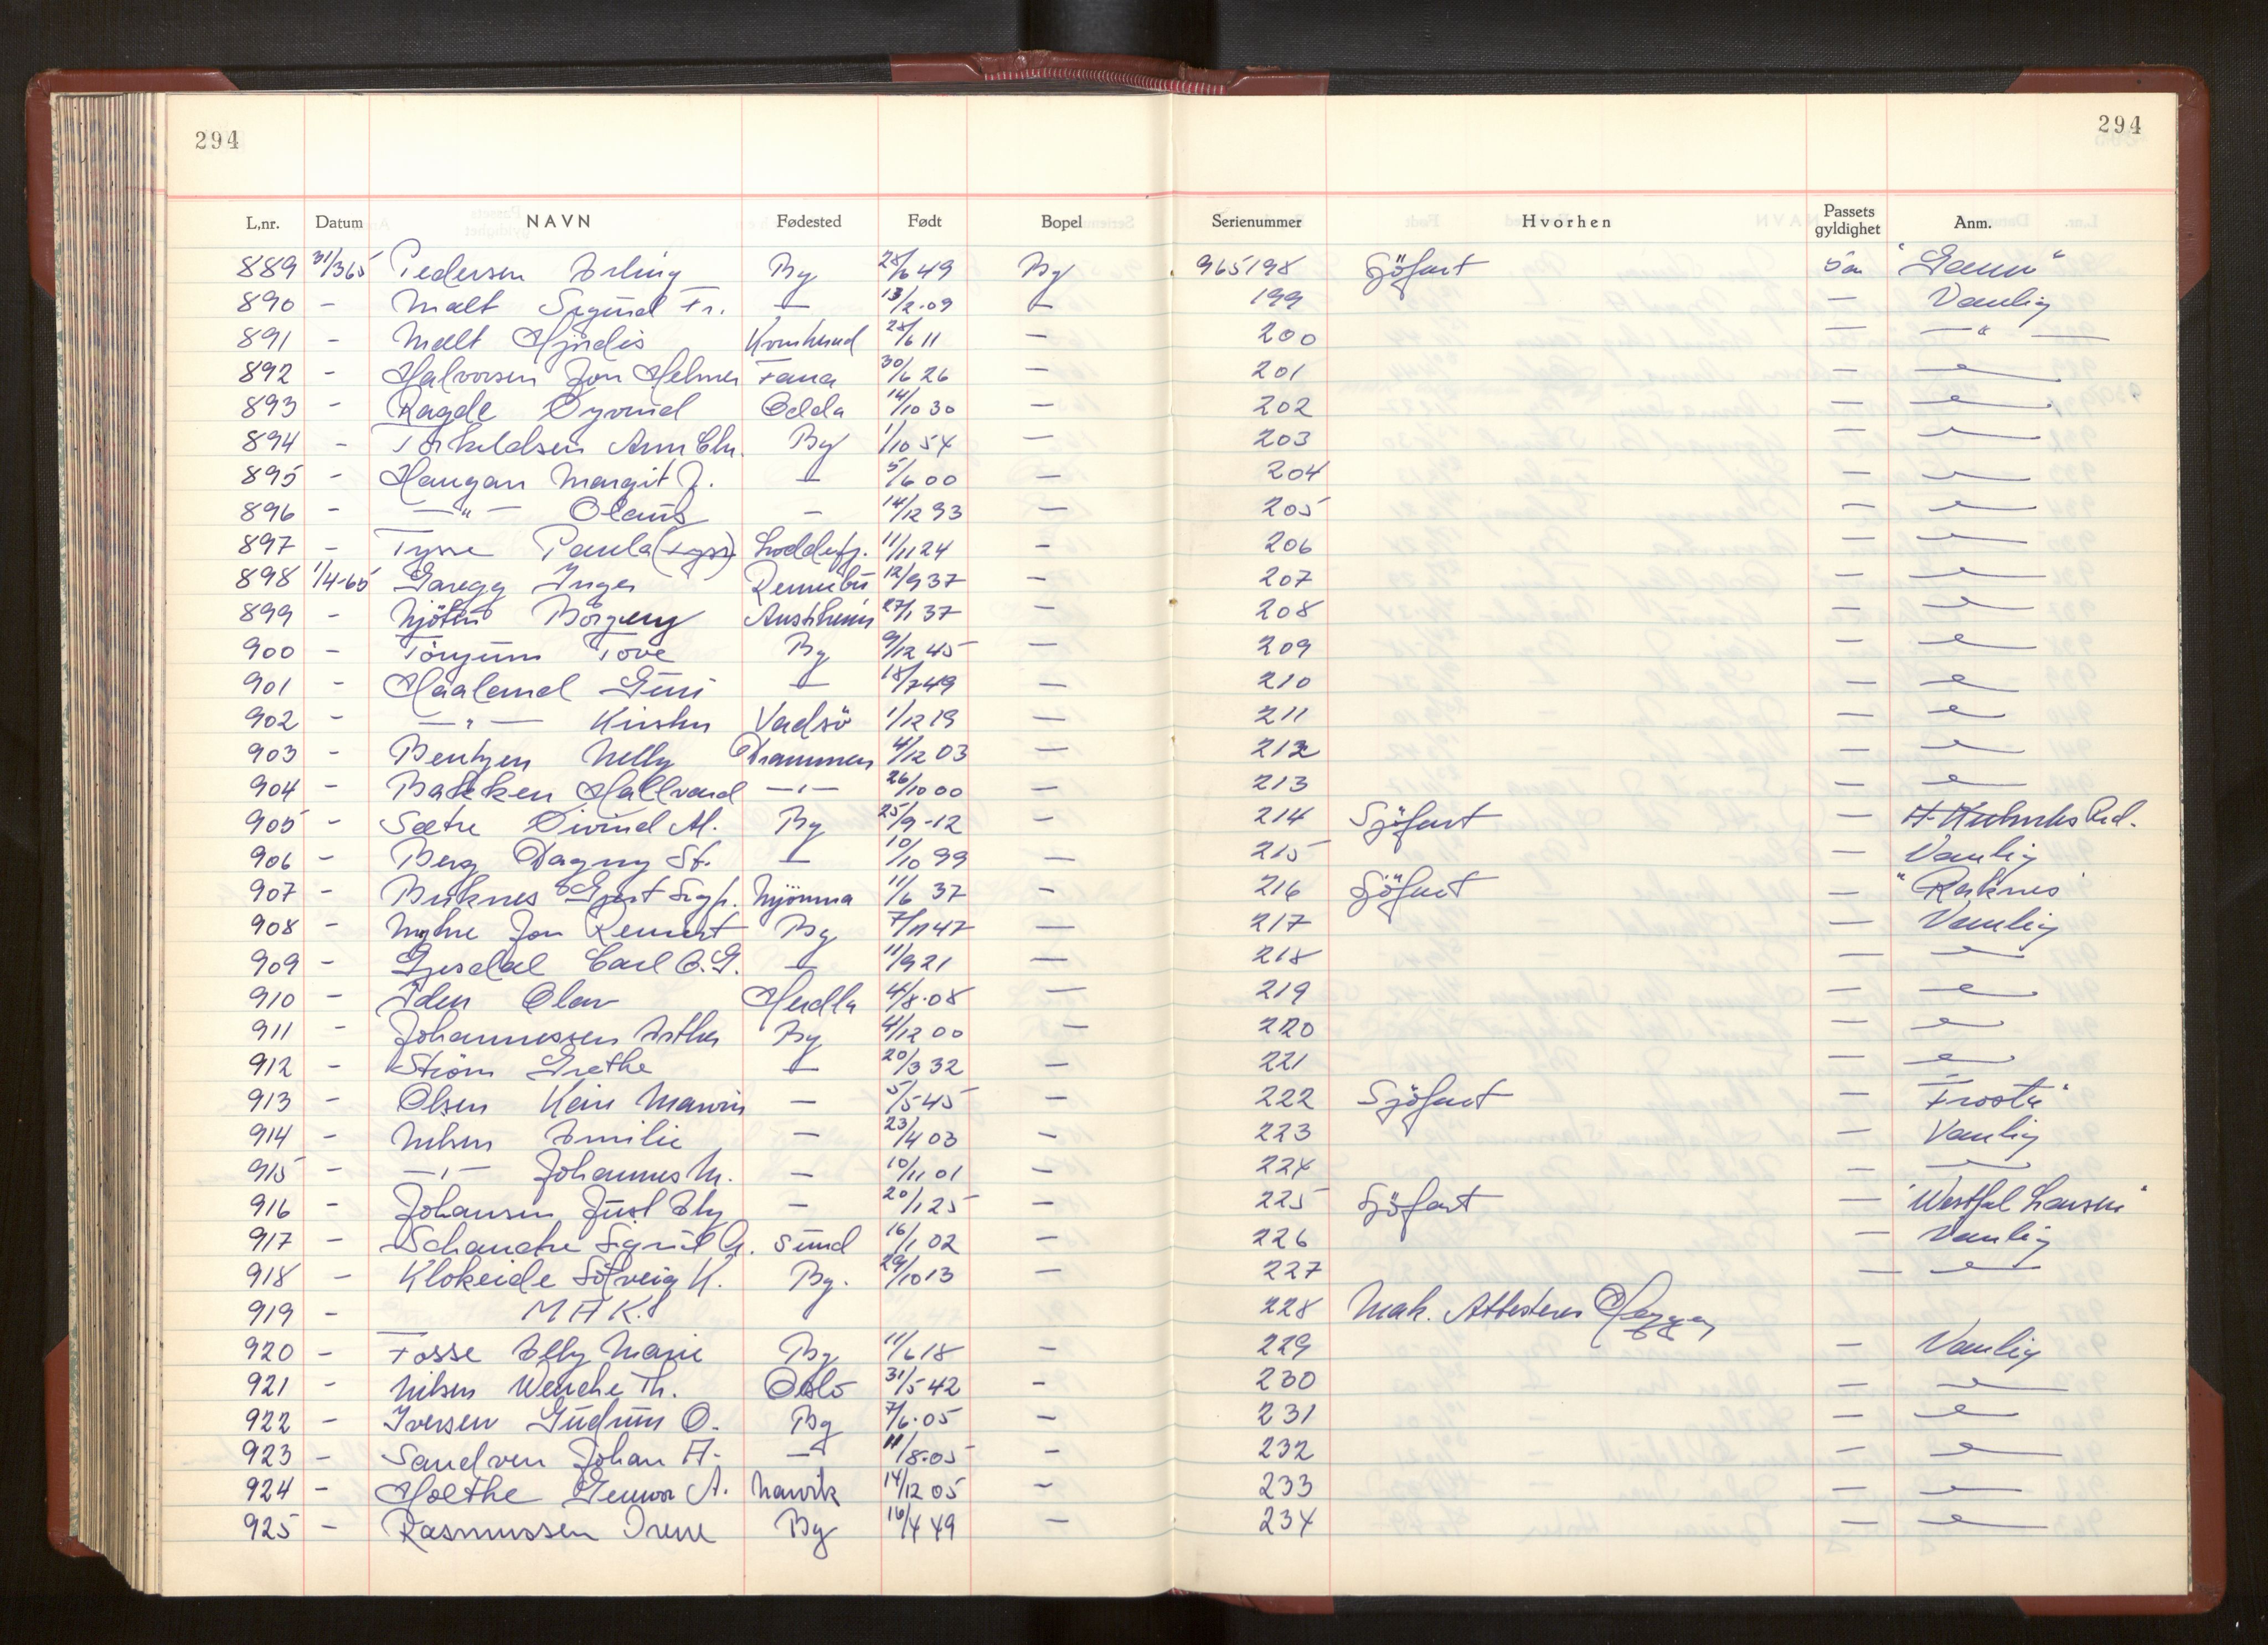 294 294
L,nr. Datum NAVN Fødested Født Bopel Serienummer Hvorhen Passets gyldighet Anm.
889 31/3 65 Pedersen Erling By 28/6 49 By 965198 Sjöfart 5 år
890 - Malt Sigurd Fr. — 13/2.09 — 199 — Vanlig
891 - Malt Hjördis 28/6 11 — 200 — —"—
892 - Halvorsen Jon Helmer Fana 30/6 26 — 201 — —
893 - Ragde Öyvind Odda 14/10 30 — 202 — —
894 - Torkildsen Ann Chr. By 1/10 54 — 203 — —
895 - Haugan Margit J. — 5/6 00 — 204 — —
896 - —"— Olaus — 14/12 93 — 205 — —
897 - Tysse Paula Loddefj. 11/11 24 - 206 — —
898 1/4-65 Garegg Inger Rennebu 12/9 37 - 207 — —
899 - Njöten Börgeny Austrheim 27/1 37 — 208 — —
900 - Törjum Tove By 9/12 45 — 209 — —
901 - Haaland Guri — 18/7 49 — 210 — —
902 - —"— Kirsten Vadsö 1/12 19 — 211 — —
903 - Bentzen Nelly Drammen 4/12 03 — 212 — —
904 - Bakken Hallvard —"— 26/10 00 — 213 — —
905 - Sætre Öivind M. By 25/9-12 — 214 Sjöfart — H. Kuhnles Red.
906 - Berg Dagny St. — 10/10 99 — 215 — Vanlig
907 - Birknes Gjert Sigf. Mjömna 11/6 37 - 216 Sjöfart — "Raknes"
908 - Myhre Jon Rennert By 7/11 47 — 217 — Vanlig
909 - Gjesdal Carl C.G. — 11/9 21 — 218 — —
910 - Iden Olav Herdla 4/8.08 — 219 — —
911 - Johannessen Esther By 4/12 00 — 220 — —
912 - Ström Grethe — 20/3 32 — 221 — —
913 - Olsen Kein Marvin — 5/5-45 — 222 Sjöfart — "Frosta"
914 - Nilsen Emilie — 23/4 03 — 223 — Vanlig
915 - —"— Johannes M. — 10/11 01 — 224 — —
916 - Johansen Just Ely — 20/1 25 — 225 Sjöfart — "Westfal Larsen"
917 - Schanche Sigrid G. Sund 16/1 02 — 226 — Vanlig
918 - Klokeide Solveig K. By. 29/10 13 — 227 — —
919 - MAK! 228 Mak. Attesteres
920 - Fosse Elly Marie By 11/6 18 — 229 — Vanlig
921 - Nilsen Wenche Th. Oslo 31/5-42 - 230 — —
922 - Iversen Gudrun O. By 7/6.05 — 231 — —
923 - Sandven Johan A. — 11/8.05 - 232 — —
924 - Holthe Gunvor A. Narvik 14/12 05 - 233 — —
925 - Rasmussen Irene By 16/4 49 — 234 — —